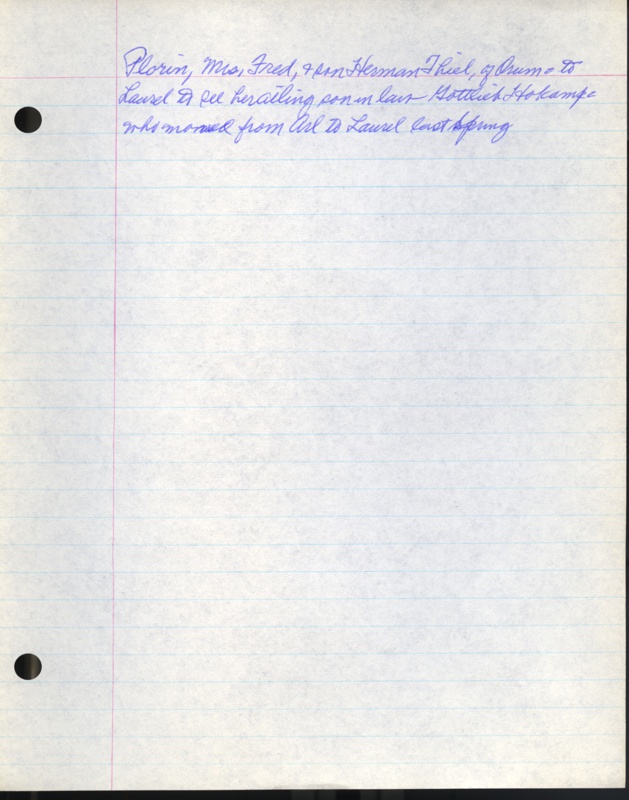 Florin, Mrs, Fred, & son Herman Thiel, of Orum - to
Laurel to see her ailing son in law - Gottlieb Hokamp -
who moved from Arl to Laurel last Spring